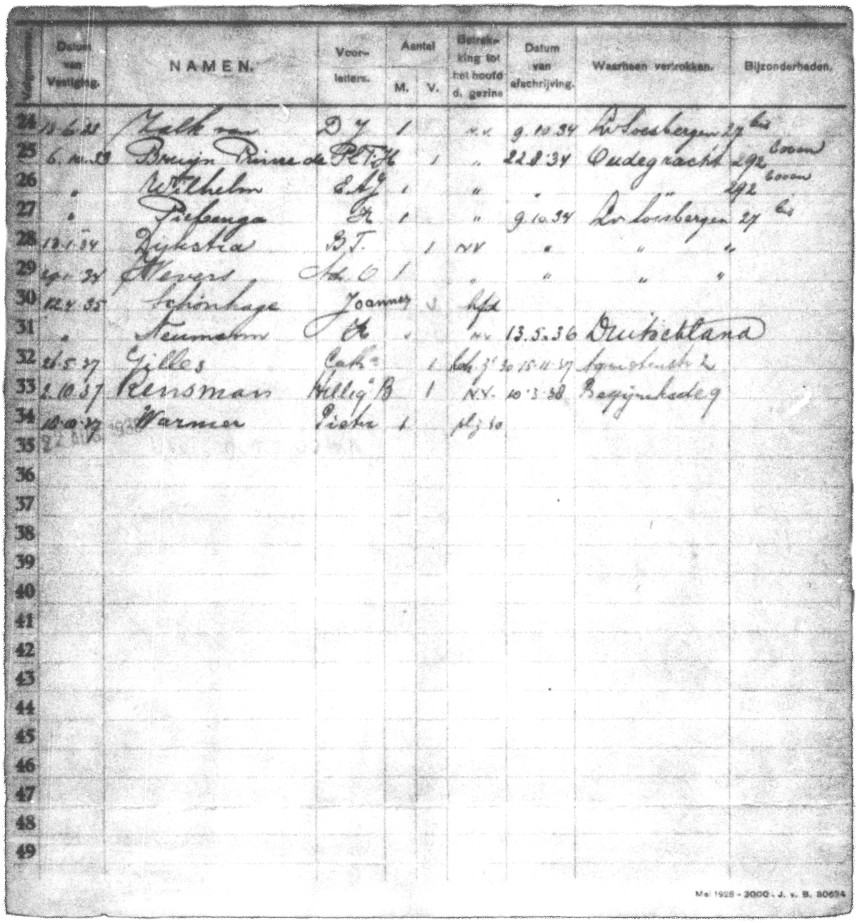 Datum van Vestiging. NAMEN. Voorletters. Aantal M. V. Betrekking tot het hoofd d. gezins Datum van afschrijving. Waarheen vertrokken. Bijzonderheden.
24 Valk van D J 1 n.v. 9.10.34 L v Soesbergen 27 bis
25 6.10.33 Bruijn Prince de 1 " 22.8.34 Oudegracht 292 boven
26 " Wilhelm E A J 1 " " " 292 boven
27 " Piebenga K 1 " 9.10.34 L v Soesbergen 27 bis
28 18.1.34 Dijkstra B T. 1 N.V " " "
29 Wevers 1 " " " "
30 12.4.35 Schönhage Joannes hfd
31 " Neumann K " n.v. 13.5.36 Duitschland
32 26.5.37 Gilles Cath 1 15.11.37
33 2.10.37 Rensman Hillig B 1 N.V. 10.3.38
34 18.10.37 Warmer Pieter 1
35
36
37
38
39
40
41
42
43
44
45
46
47
48
49
Mei 1928 - 3000 - J. v. B. 80634